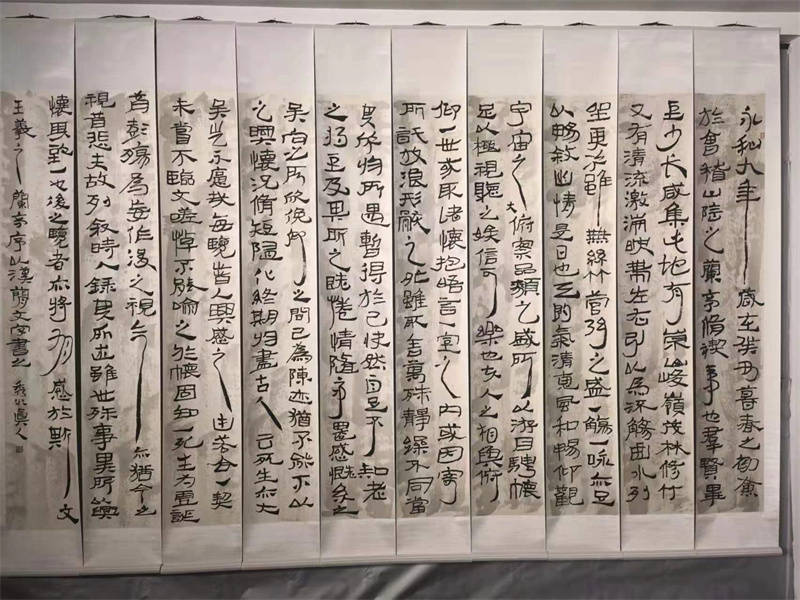 永和九年歲在癸丑暮春之初會
於會稽山陰之蘭亭脩禊事也羣賢畢
至少長咸集此地有崇峻嶺茂林修竹
又有清流激湍映帶左右引以為流觴曲水列
坐其次雖無絲竹管弦之盛一觴一詠亦足
以暢敘幽情是日也天朗氣清惠風和暢仰觀
宇宙之大俯察品類之盛所以游目騁懷
足以極視聽之娛信可樂也夫人之相與俯
仰一世或取諸懷抱晤言一室之內或因寄
所託放浪形骸之外雖取舍萬殊靜躁不同當
其欣於所遇暫得於己快然自足不知老
之將至及其所之既惓情隨事遷感慨係之
矣向之所欣俛仰之間已為陳迹猶不能不以
之興懷況脩短隨化終期於盡古人云死生亦大
矣豈不痛哉每覽昔人興感之由若合一契
未嘗不臨文嗟悼不能喻之於懷固知一死生為虛誕
齊彭殤為妄作後之視今亦猶今之
視昔悲夫故列敘時人錄其所述雖世殊事異所以興
懷其致一也後之覽者亦將有感於斯文
王羲之蘭亭序以漢簡文字書之 真人